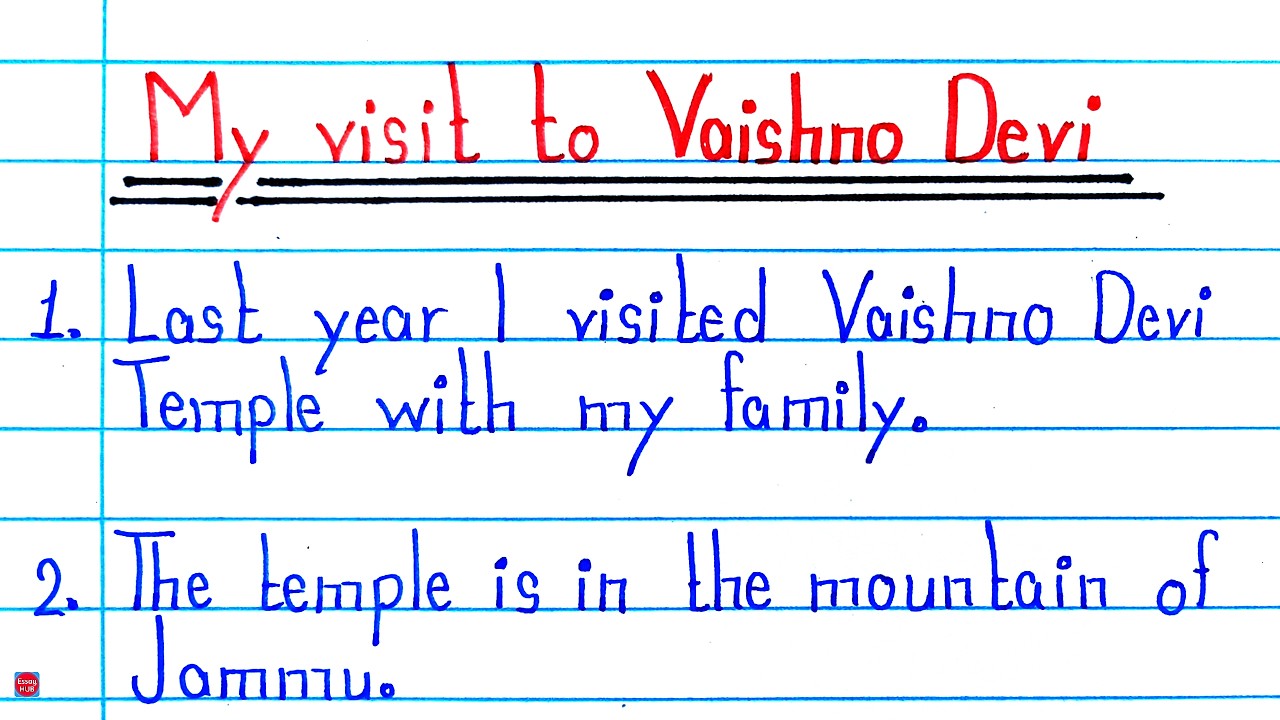 My visit to Vaishno Devi
1. Last year I visited Vaishno Devi
Temple with my family.
2. The temple is in the mountain of
Jammu.
Essay
HUB